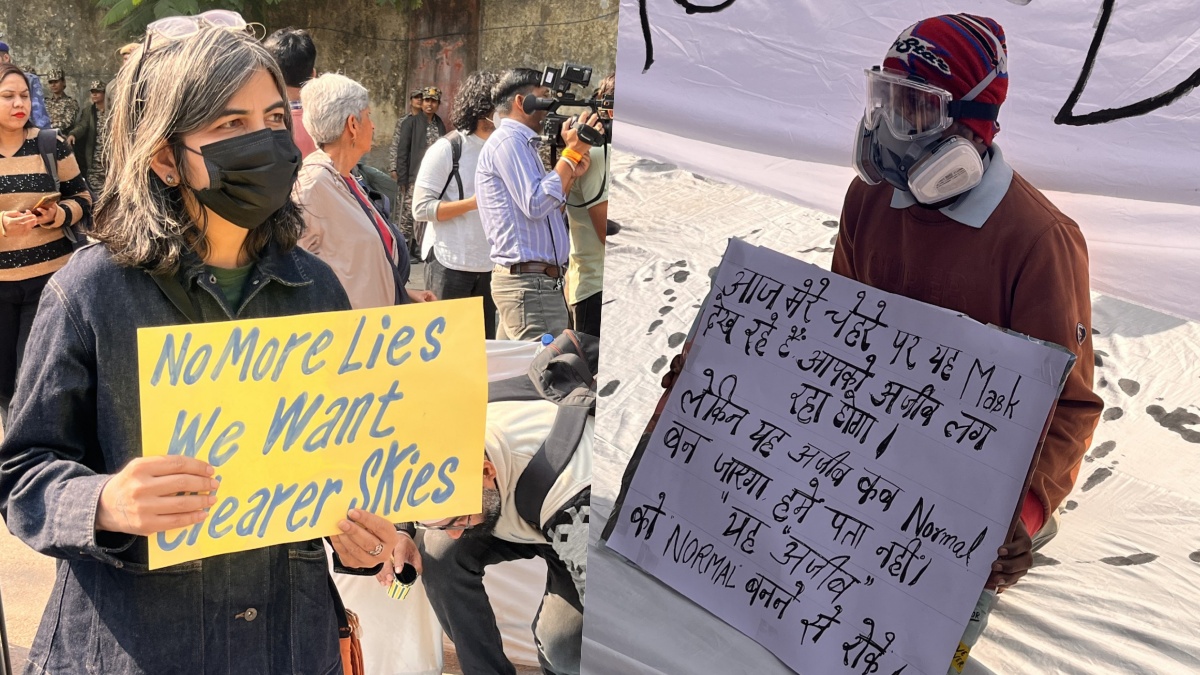 No More Lies
We Want
Clearer Skies
आज मेरे चेहरे पर यह Mask
देख रहे हैं आपको अजीब लग
रहा होगा।
लेकिन यह अजीब कब Normal
बन जाएगा हमे पता नहीं।
यह "अजीब"
को NORMAL बनने से रोके।